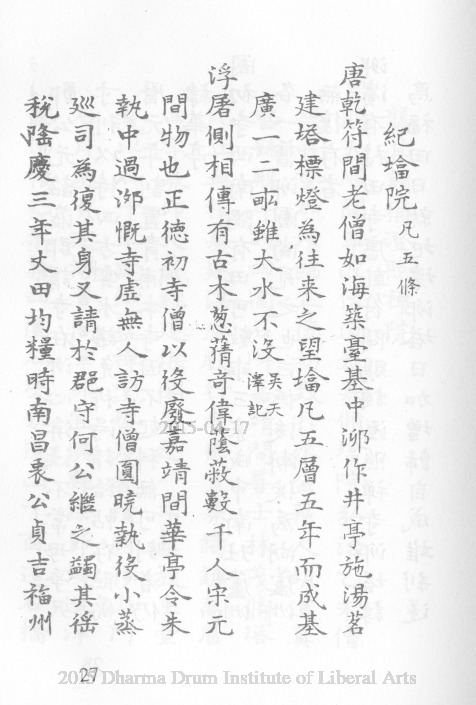 紀墖院凡五條
唐乾符間老僧如海築臺基中泖作井亭施湯茗
建塔標燈為往来之望墖凡五層五年而成基
廣二二畝雖大水不沒吳天澤記
浮屠側相傳有古木葱蒨竒偉陰蔽數千人宋元
間物也正徳初寺僧以役廢嘉靖間華亭令朱
執中過泖慨寺虛無人訪寺僧圓曉執役小蒸
廵司為復其身又請扵郡守何公繼之蠲其徭
稅隆慶三年丈田均糧時南昌袁公貞吉福州
2015-04-17
27
20 Dharma Drum Institute of Liberal Arts